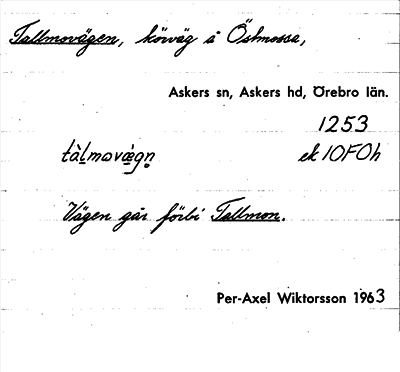 Tallmovägen, körväg å Östmossa,
Askers sn, Askers hd, Örebro län.
1253
tàḷmovæ̀gṇ ek 10F0h
Vägen går förbi Tallmon.
Per-Axel Wiktorsson 1963